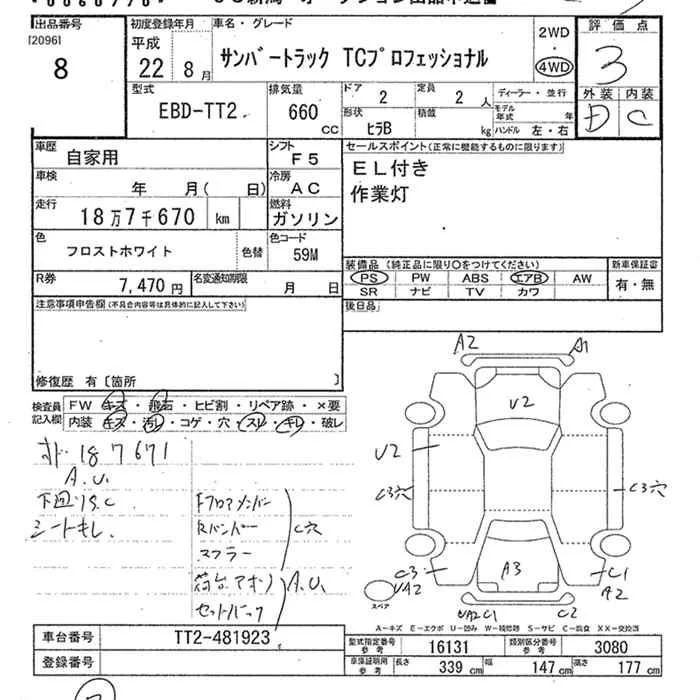 出品番号
[20961
8
初度登録年月
平成
22 8月
車名・グレード
サンバートラック TCプロフェッショナル
2WD
・
4WD
評価点
3
外装 内装
D C
型式
EBD-TT2
排気量
660 cc
ドア
2
定員
2 人
形状
ヒラB
積載
kg
ディーラー・並行
モデル年式 年
ハンドル 左・右
車歴
自家用
シフト
F5
車検
年 月( 日)
冷房
AC
走行
18万7千670 km
燃料
ガソリン
色
フロストホワイト
色替
色コード
59M
R券
7,470円
名変通知期限
月 日
セールスポイント(正常に機能するものに限ります)
EL付き
作業灯
装備品(純正品に限り○をつけてください)
PS PW ABS エアB AW
SR ナビ TV カワ
新車保証書
有・無
後日品
注意事項申告欄(不具合内容等は具体的に記入して下さい)
修復歴 有〔箇所 〕
検査員記入欄
FW キズ・飛石・ヒビ割・リペア跡・×要
内装 キズ・汚レ・コゲ・穴・スレ・キレ・破レ
187671
A.U.
下回りS.C
シートキレ
Fフロアメンバー
Rバンパー
マフラー
C穴
荷台アオリ
セットバック
A.U.
A2 A1
V2
U2
C3穴
C3穴
A3
C3
UA2
C1
A2
スペア
UA2 C1
C2
A-キズ E-エクボ U-凹み W-補修跡 S-サビ C-腐食 XX-交換済
車台番号
TT2-481923
登録番号
型式指定番号 参考
16131
類別区分番号 参考
3080
車庫証明用 参考
長さ
339 cm
幅
147 cm
高さ
177 cm